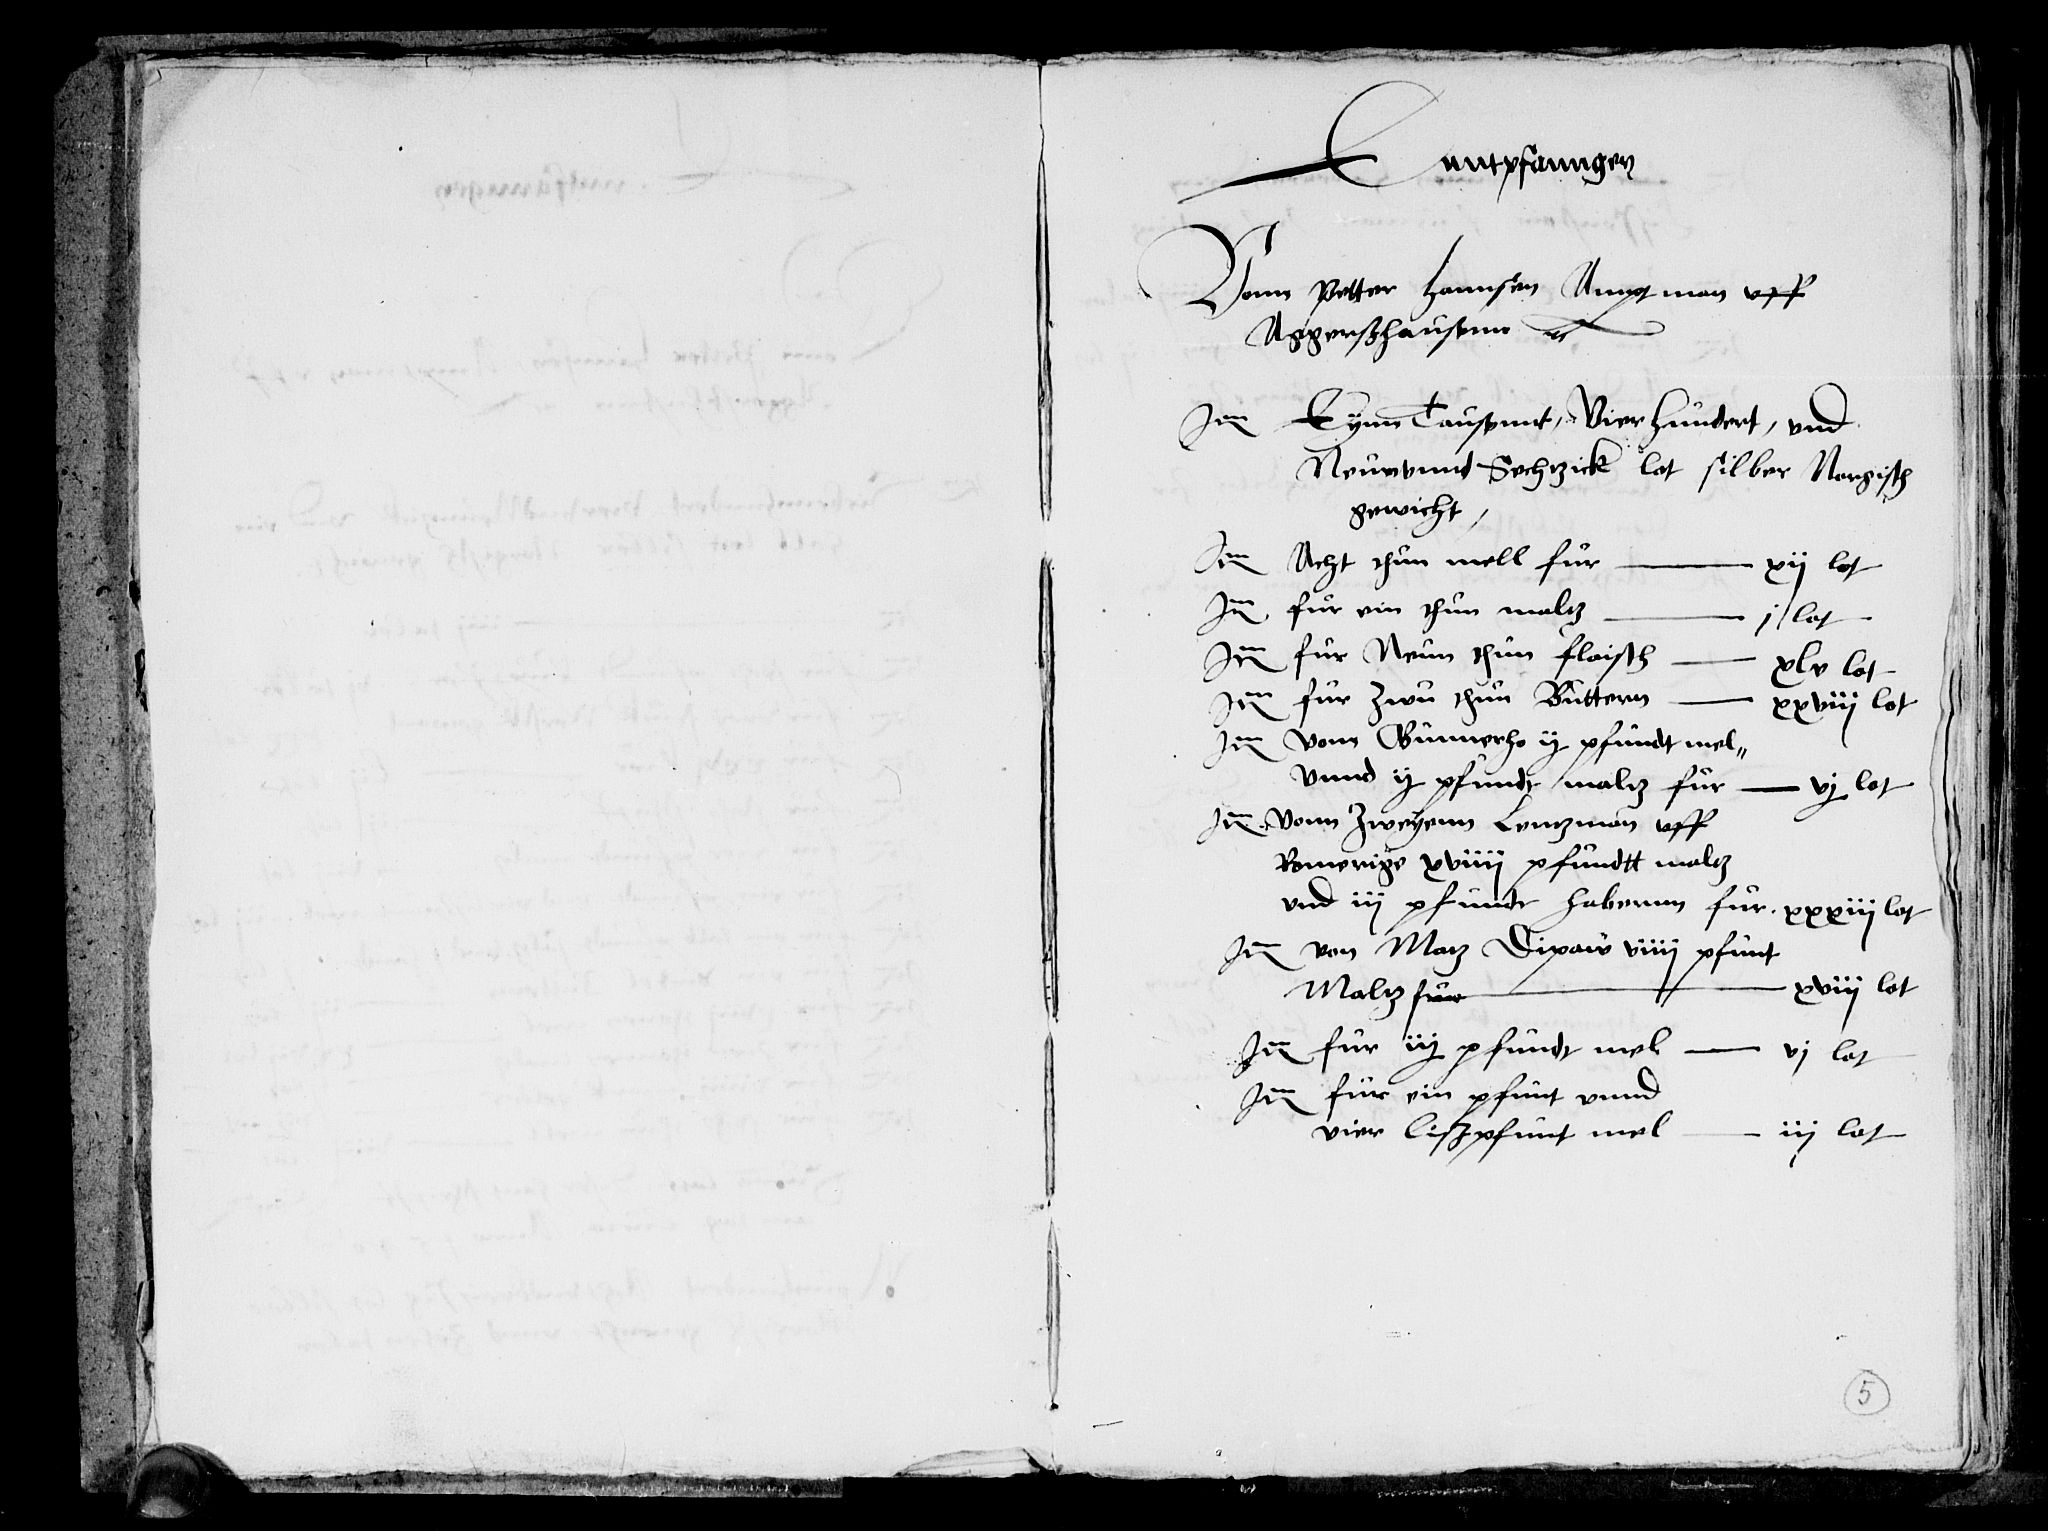 Enntpfanngen
Vonn Petter Hannsen Ampt man vff
Aggerßhausenn etc
Jtem Eynn Tausennt, Vierhundert, vnd
Neunvnnd Sechtzick lot silber Norgisch
gewicht,
Jtem Acht thun mell fur xij lot
Jtem fur ein thun maltz j lot
Jtem fur Neun thun flaisch xlv lot
Jtem fur Zwu thun Buttern xxviij lot
Jtem vonn Gunnerho ij pfundt mel
vnnd ij pfundt maltz fur vj lot
Jtem vonn Zweyenn Lentzman vff
Romerige xviiij pfundtt maltz
vnd iij pfundt habernn fur xxxiij lot
Jtem von Matz Dipaw viiij pfunt
Maltz fur xviij lot
Jtem fur iij pfundt mel vj lot
Jtem fur ein pfunt vnnd
vier lißpfunt mel iij lot
5